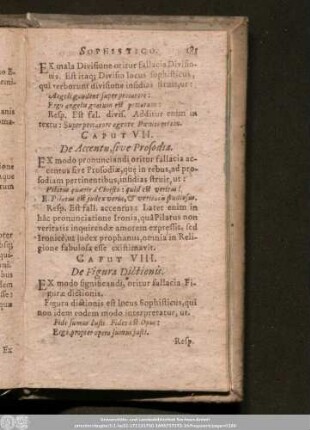 SOPHISTICO. 181
EX mala Divisione oritur fallacia Divisio-
nis. Est itaq; Divisio locus sophisticus,
qui verborum divisione insidias struit, ut:
Angeli gaudent super peccatore:
Ergo angelis gratum est peccatum:
Resp. Est fal. divis. Additur enim in
textu: Super peccatore agente Pœnitentiam.
CAPUT VII.
De Accentu, sive Prosodia.
EX modo pronunciandi oritur fallacia ac-
centus sive Prosodiæ, quæ in rebus, ad pro-
sodiam pertinentibus, insidias struit, ut:
Pilatus quærit à Christo: quid est veritas?
E. Pilatus est judex verus, & veritatis studiosus.
Resp. Est fall. accentus: Latet enim in
hac pronunciatione Ironia, quâ Pilatus non
veritatis inquirendæ amorem expressit, sed
Ironicè, ut judex prophanus, omnia in Reli-
gione fabulosa esse existimavit.
CAPUT VIII.
De Figura Dictionis.
EX modo significandi, oritur fallacia Fi-
guræ dictionis.
Figura dictionis est locus Sophisticus, qui
non idem eodem modo interpretatur, ut.
Fide sumus Justi. Fides est Opus:
Ergo, propter opera sumus justi.
Resp.
Ex